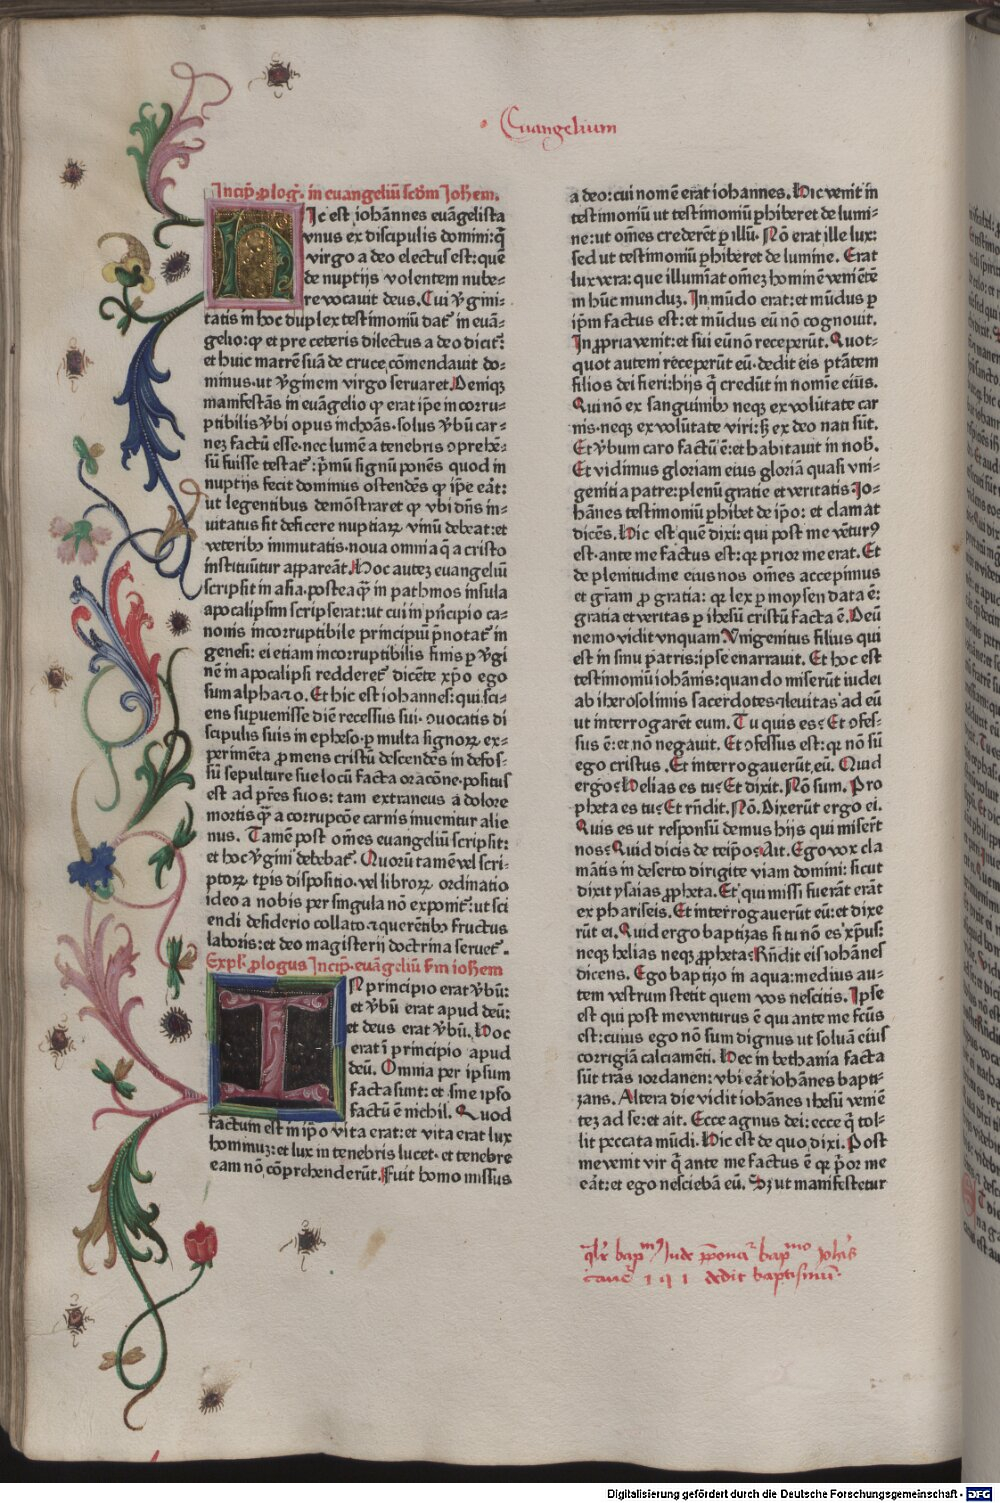 Euangelium
Incip̄ ꝓlog᷒. in euangeliū scḋm Joħem.
Hic est iohānnes euāgelista
vnus ex discipulis domini: q̄
virgo a deo electus est: quē
de nuptijs volentem nube-
re vocauit deus. Cui v̄gini-
tatis in hoc duplex testimoniū daт̄ in euā-
gelio: ꝙ et pre ceteris dilectus a deo diciт̄:
et huic matrē suā de cruce cōmendauit do-
minus. ut v̄ginem virgo seruaret. Deniqꝫ
manifestās in euāgelio ꝙ erat ip̄e incorru-
ptibilis v̄bi opus inchoās. solus v̄bū car-
nez factū esse. nec lumē a tenebris ꝯprehē-
sū fuisse testaт̄: p̄mū signū ponēs quod in
nuptijs fecit dominus ostendēs ꝙ ip̄e eāt:
ut legentibus demōstraret ꝙ vbi dn̄s in-
uitatus sit deficere nuptiaꝝ vinū debeat: et
veteribꝰ immutatis. noua omnia q̄ a cristo
instituūtur appareāt. Hoc autez euangeliū
scripsit in asia. posteaꝗ̄ in pathmos insula
apocalipsim scripserat: ut cui in pn̄cipio ca-
nonis incorruptibile principiū p̄notaт̄ in
genesi: ei etiam incorruptibilis finis ꝑ v̄gi
nē in apocalipsi redderet̄ dicēte xp̄o ego
sum alpha ⁊ o. Et hic est iohannes: qui sci-
ens supuenisse diē recessus sui. ꝯuocatis di
scipulis suis in epheso. ꝑ multa signoꝝ ex-
perimēta ꝓmens cristū descendēs in defos-
sū sepulture sue locū facta oracōne. positus
est ad pr̄es suos: tam extraneus a dolore
mortis ꝗ̄ a corrupcōe carnis inuenitur alie
nus. Tamē post om̄es euangeliū scripsit:
et hoc v̄gini debebaт̄. Quorū tamē vel scri-
ptoꝝ tp̄is dispositio. vel libroꝝ ordinatio
ideo a nobis per singula nō exponiт̄: ut sci
endi desiderio collato. ⁊ querētibꝰ fructus
laboris: et deo magisterij doctrina serueт̄.
Expl. ꝓlogus Incip̄. euāgeliū s̄m ioħem
IN principio erat v̄bū:
et v̄bū erat apud deū:
et deus erat v̄bū. Hoc
erat ī principio apud
deū. Omnia per ipsum
facta sunt: et sine ipso
factū ē nichil. Quod
factum est in ip̄o vita erat: et vita erat lux
hominuꝫ: et lux in tenebris lucet. et tenebre
eam nō cōprehenderūt. Fuit homo missus
a deo: cui nomē erat iohannes. Hic venit in
testimoniū ut testimoniū ꝑhiberet de lumi-
ne: ut om̄es crederēt ꝑ illū. Nō erat ille lux:
sed ut testimoniū ꝑhiberet de lumine. Erat
lux vera: que illumīat om̄eꝫ hominē veniētē
in hūc munduꝫ. In mūdo erat: et mūdus ꝑ
ip̄m factus est: et mūdus eū nō cognouit.
In ꝓpria venit: et sui eū nō receperūt. Quot-
quot autem receperūt eū. dedit eis pt̄atem
filios dei fieri: hijs q̄ credūt in nomīe eius.
Qui nō ex sanguinibꝰ neqꝫ ex volūtate car
nis. neqꝫ ex volūtate viri: sꝫ ex deo nati sūt.
Et v̄bum caro factū ē: et habitauit in nob̄.
Et vidimus gloriam eius gloriā quasi vni-
geniti a patre: plenū gratie et veritatis. Jo-
hānes testimoniū ꝑhibet de ip̄o: et clamat
dicēs. Hic est quē dixi: qui post me vētur᷒
est. ante me factus est: qꝫ prior me erat. Et
de plenitudine eius nos om̄es accepimus
et gr̄am ꝓ gratia: qꝫ lex ꝑ moysen data ē:
gratia et veritas ꝑ ihesū cristū facta ē. Deū
nemo vidit vnquam. Vnigenitus filius qui
est in sinu patris: ipse enarrauit. Et hoc est
testimoniū iohānis: quando miserūt iudei
ab iherosolimis sacerdotes ⁊ leuitas ad eū
ut interrogarēt eum. Tu quis es? Et ꝯfes-
sus ē: et nō negauit. Et ꝯfessus est: qꝫ nō sū
ego cristus. Et interrogauerūt eū. Quid
ergo? Helias es tu? Et dixit. Nō sum. Pro
pheta es tu? Et rn̄dit. Nō. Dixerūt ergo ei.
Quis es ut responsū demus hijs qui miserūt
nos? Quid dicis de teip̄o? Ait. Ego vox cla
mātis in deserto dirigite viam domini: sicut
dixit ysaias ꝓpheta. Et qui missi fuerāt erāt
ex phariseis. Et interrogauerūt eū: et dixe
rūt ei. Quid ergo baptizas si tu nō es xp̄us:
neqꝫ helias neqꝫ ꝓpheta? Rn̄dit eis iohānes
dicens. Ego baptizo in aqua: medius au-
tem vestrum stetit quem vos nescitis. Ipse
est qui post me venturus ē qui ante me fc̄us
est: cuius ego nō sum dignus ut soluā eius
corrigiā calciamēti. Hec in bethania facta
sūt trās iordanen: vbi eāt iohānes bapti-
zans. Altera die vidit iohānes ihesū veniē
tez ad se: et ait. Ecce agnus dei: ecce q̄ tol-
lit peccata mūdi. Hic est de quo dixi. Post
me venit vir q̄ ante me factus ē qꝫ p̄or me
eāt: et ego nesciebā eū. Sꝫ ut manifestetur
dedit baptismū.
Digitalisierung gefördert durch die Deutsche Forschungsgemeinschaft - DFG